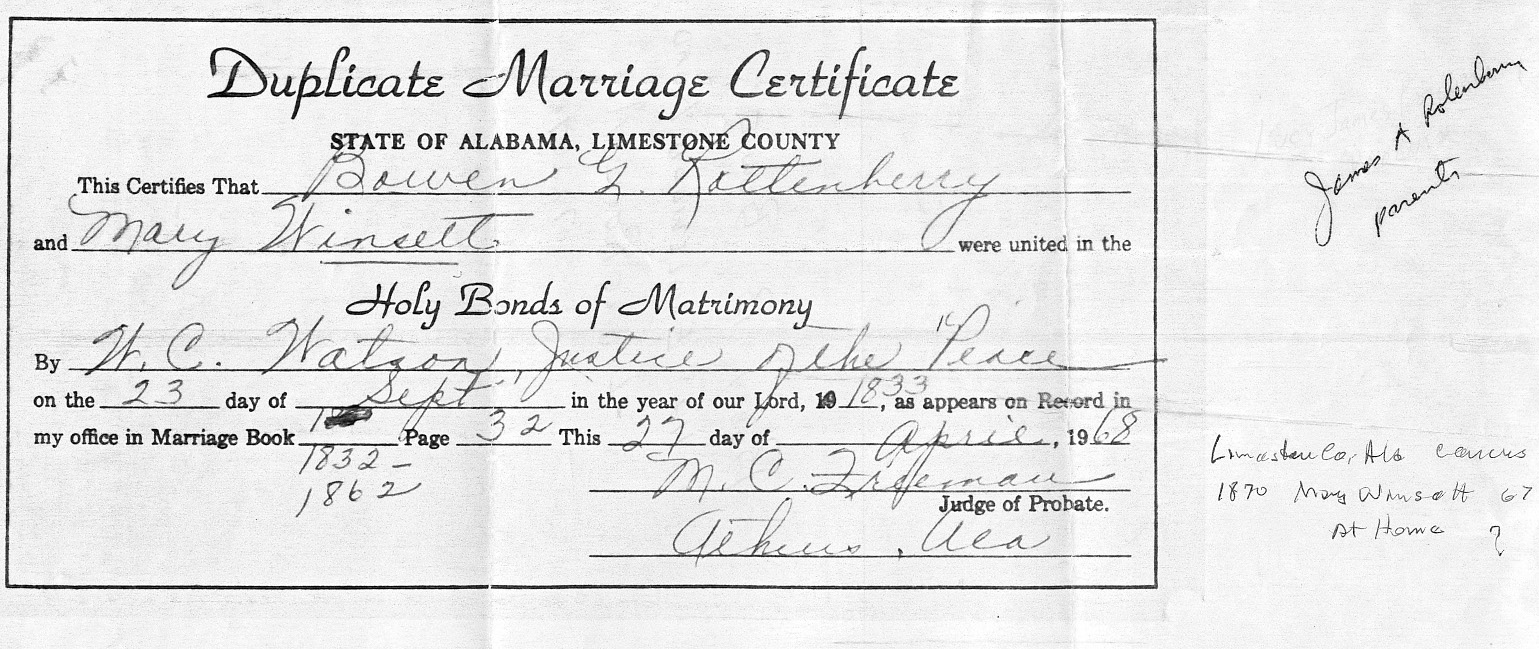 Duplicate Marriage Certificate
STATE OF ALABAMA, LIMESTONE COUNTY
This Certifies That Bowen G. Rottenberry
and Mary Winsett were united in the
Holy Bonds of Matrimony
By W. C. Watson, Justice of the Peace
on the 23 day of Sept in the year of our Lord, 19 1833, as appears on Record in
my office in Marriage Book Page 32 This 27 day of April, 1968
1832-
1862
M. C. Freeman
Judge of Probate.
Athens, Ala
James A Rotenberry
parents
Limestone Co, Ala census
1870 Mary Winsett 67
At Home ?